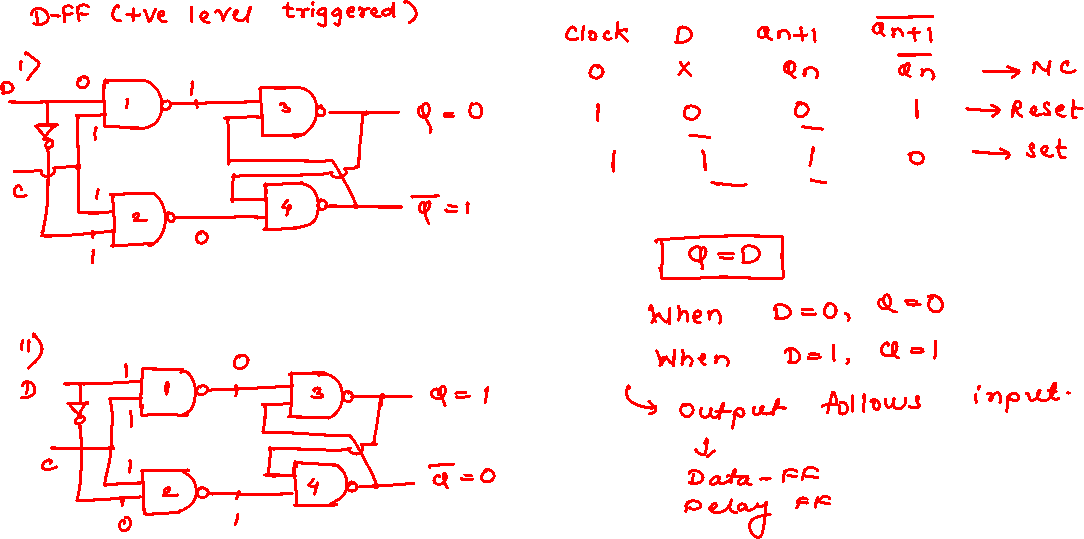 D-FF (+ve level triggered)
i)
D
0
1
1
1
3
Q = 0
C
1
2
1
0
4
Q̅ = 1
ii)
D
1
1
1
0
3
Q = 1
C
1
2
0
1
4
Q̅ = 0
Clock D Qn+1 Q̅n+1
0 X Qn Q̅n → NC
1 0 0 1 → Reset
1 1 1 0 → Set
Q = D
When D=0, Q=0
When D=1, Q=1
↳ Output follows input.
↓
Data-FF
Delay FF